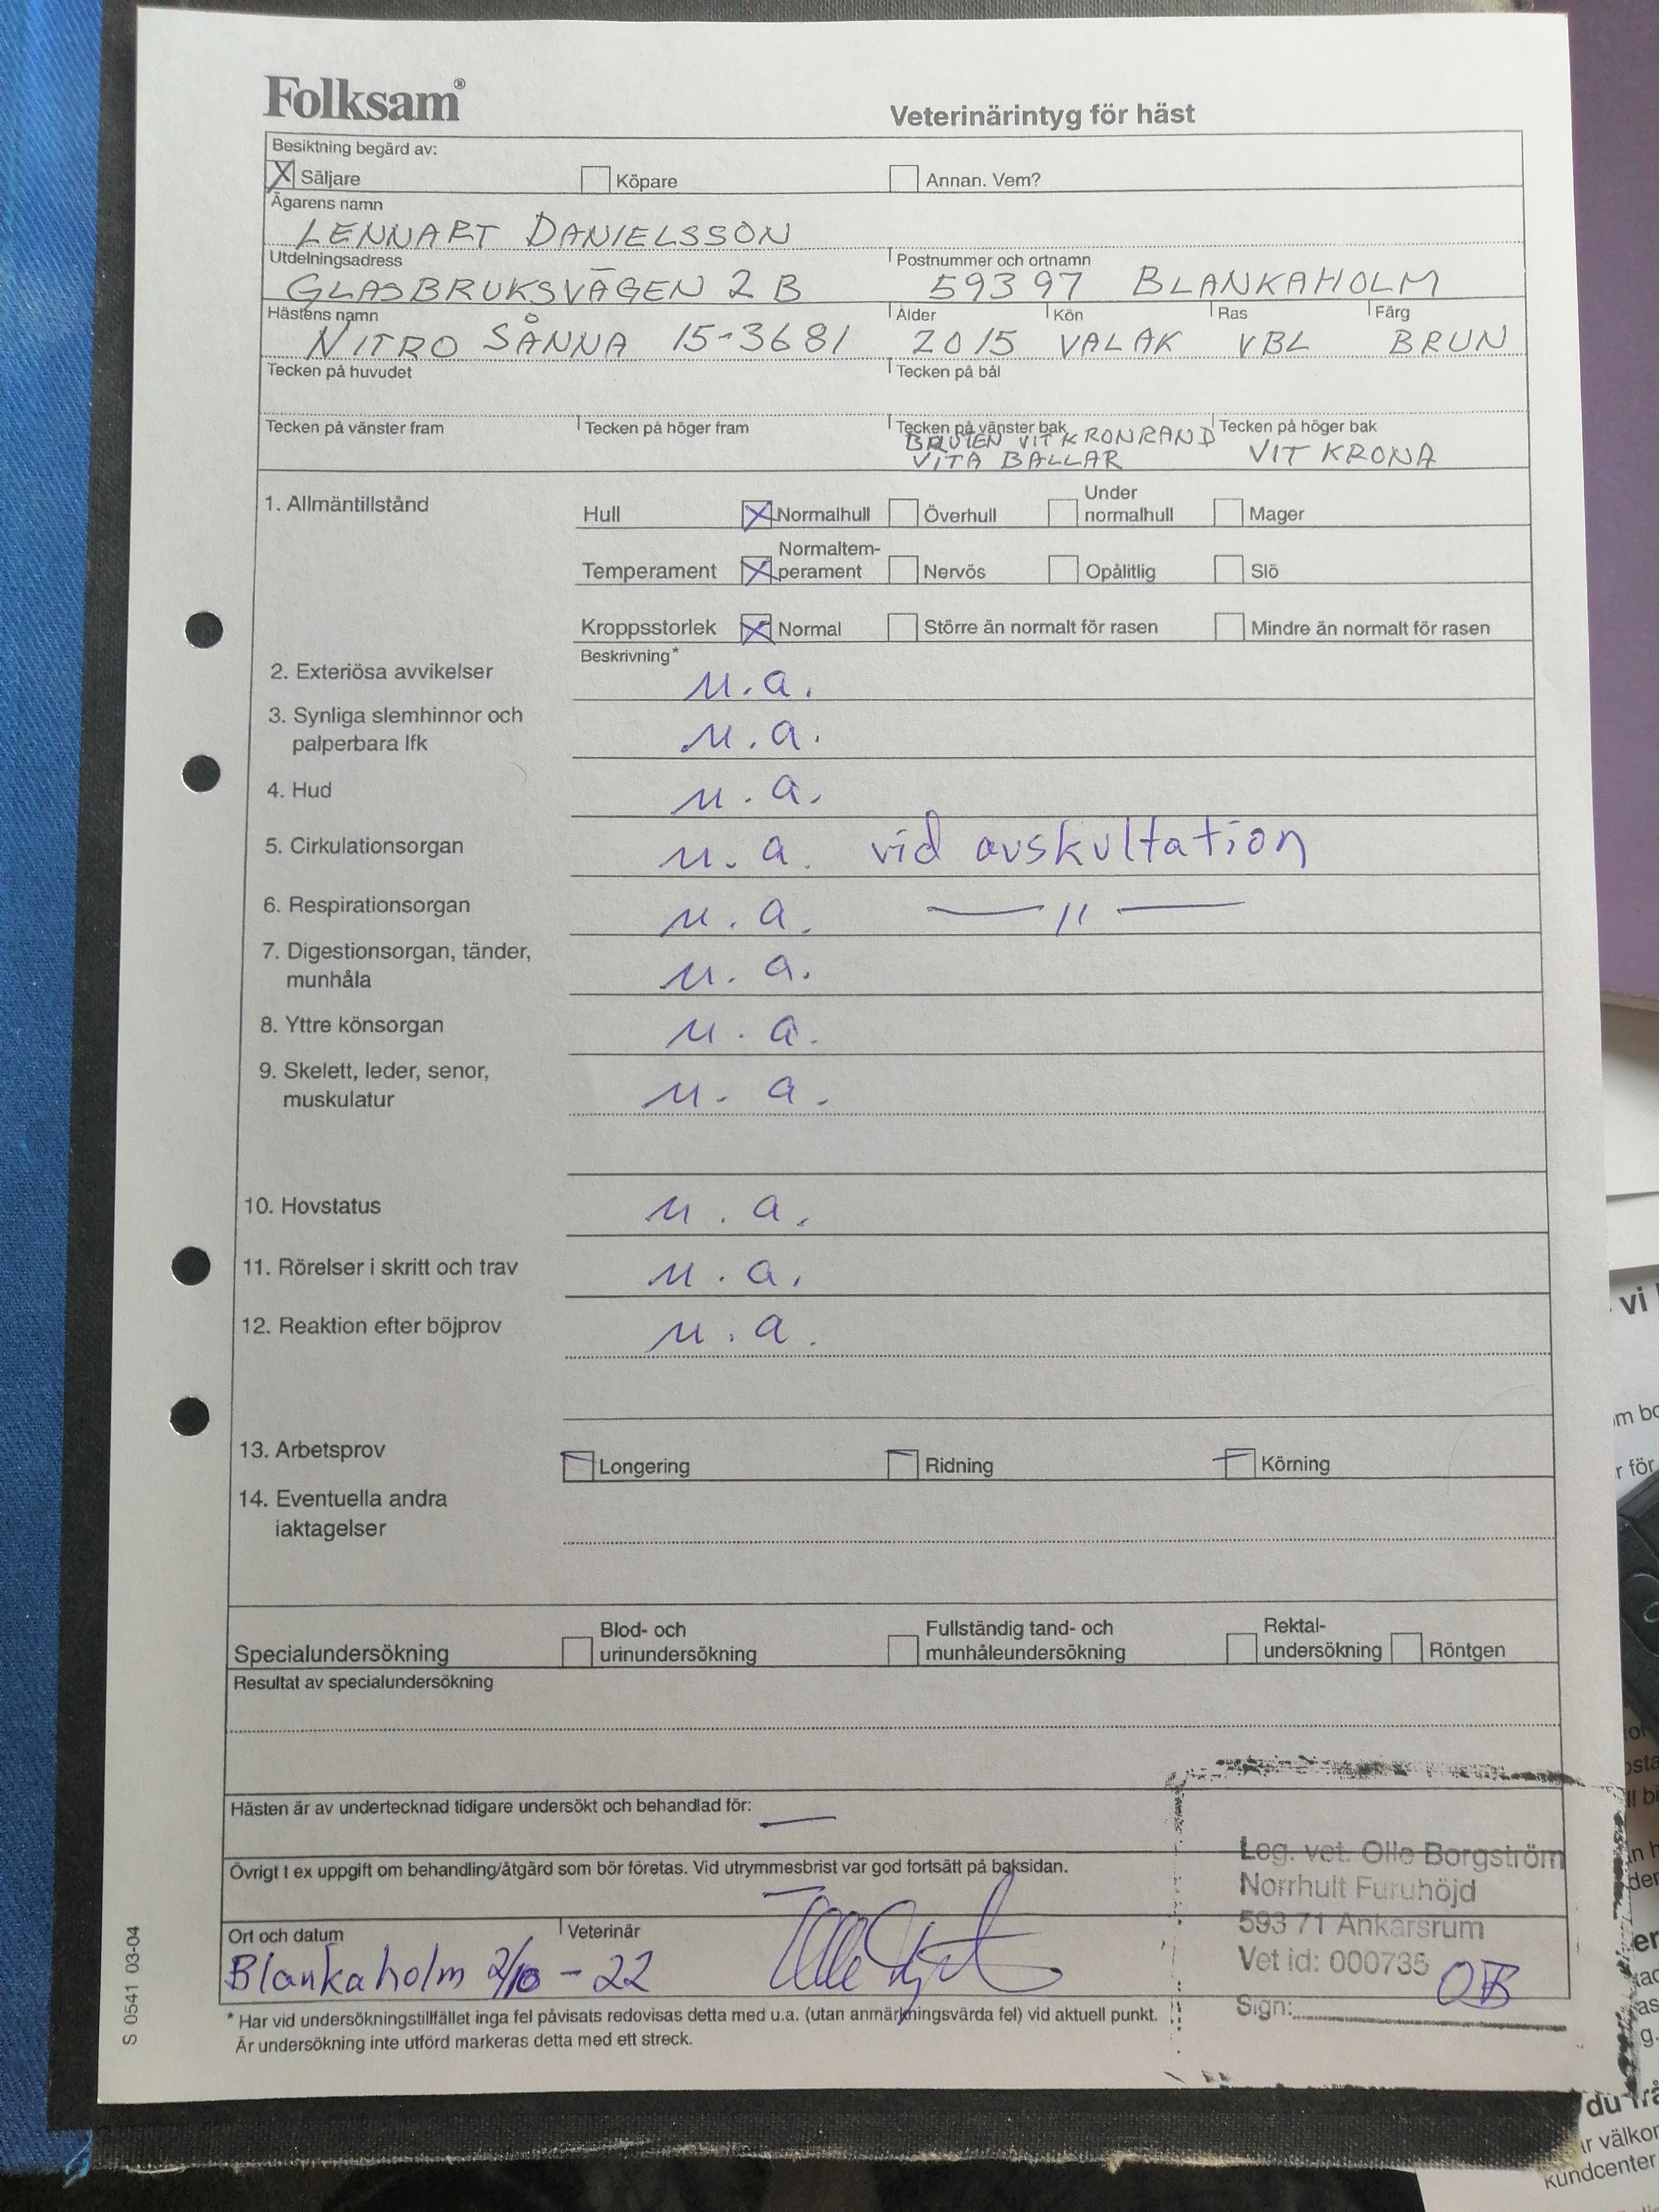 Folksam®
Veterinärintyg för häst
Besiktning begärd av:
X Säljare Köpare Annan. Vem?
Ägarens namn
LENNART DANIELSSON
Utdelningsadress Postnummer och ortnamn
GLASBRUKSVÄGEN 2 B 59397 BLANKAHOLM
Hästens namn Ålder Kön Ras Färg
NITRO SÅNNA 15-3681 2015 VALAK VBL BRUN
Tecken på huvudet Tecken på bål
Tecken på vänster fram Tecken på höger fram Tecken på vänster bak Tecken på höger bak
BRUTEN VIT KRONRAND
VITA BALLAR VIT KRONA
1. Allmäntillstånd
Hull X Normalhull Överhull Under normalhull Mager
Temperament X Normaltem-perament Nervös Opålitlig Slö
Kroppsstorlek X Normal Större än normalt för rasen Mindre än normalt för rasen
Beskrivning*
2. Exteriösa avvikelser u.a.
3. Synliga slemhinnor och
palperbara lfk u.a.
4. Hud u.a.
5. Cirkulationsorgan u.a. vid auskultation
6. Respirationsorgan u.a. — " —
7. Digestionsorgan, tänder,
munhåla u.a.
8. Yttre könsorgan u.a.
9. Skelett, leder, senor,
muskulatur u.a.
10. Hovstatus u.a.
11. Rörelser i skritt och trav u.a.
12. Reaktion efter böjprov u.a.
13. Arbetsprov Longering Ridning Körning
14. Eventuella andra
iaktagelser
Specialundersökning Blod- och urinundersökning Fullständig tand- och munhåleundersökning Rektal-undersökning Röntgen
Resultat av specialundersökning
Hästen är av undertecknad tidigare undersökt och behandlad för: —
Övrigt t ex uppgift om behandling/åtgärd som bör företas. Vid utrymmesbrist var god fortsätt på baksidan.
—
Leg. vet. Olle Borgström
Norrhult Furuhöjd
593 71 Ankarsrum
Vet id: 000735
Sign: OB
Ort och datum Veterinär
Blankaholm 2/10 - 22
* Har vid undersökningstillfället inga fel påvisats redovisas detta med u.a. (utan anmärkningsvärda fel) vid aktuell punkt.
Är undersökning inte utförd markeras detta med ett streck.
S 0541 03-04
vi
r för
du frå
kundcenter